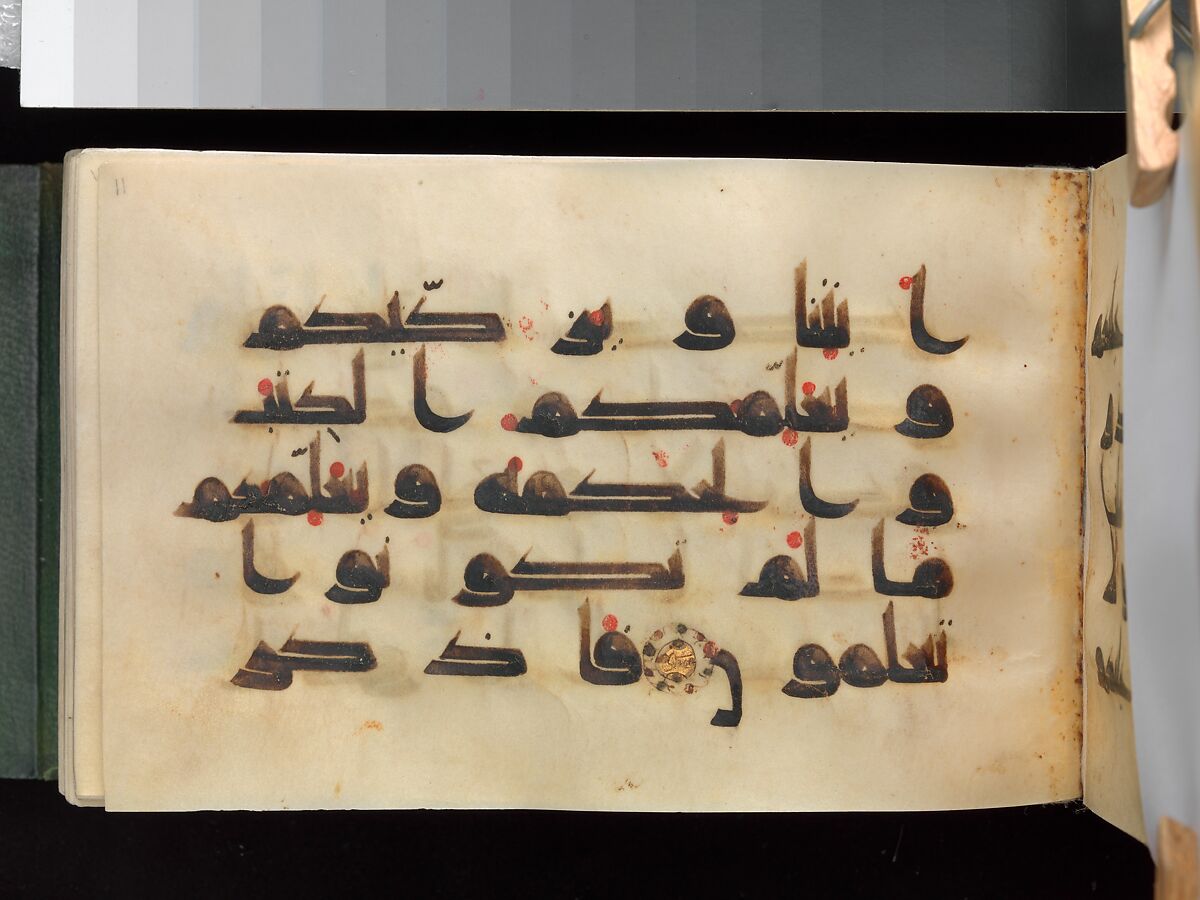 11
ا يتنا و يز كيكم
و يعلمكم ا لكتب
و ا لحكمة و يعلمكم
ما لم تكو نو ا
تعلمون فا ذ كرو